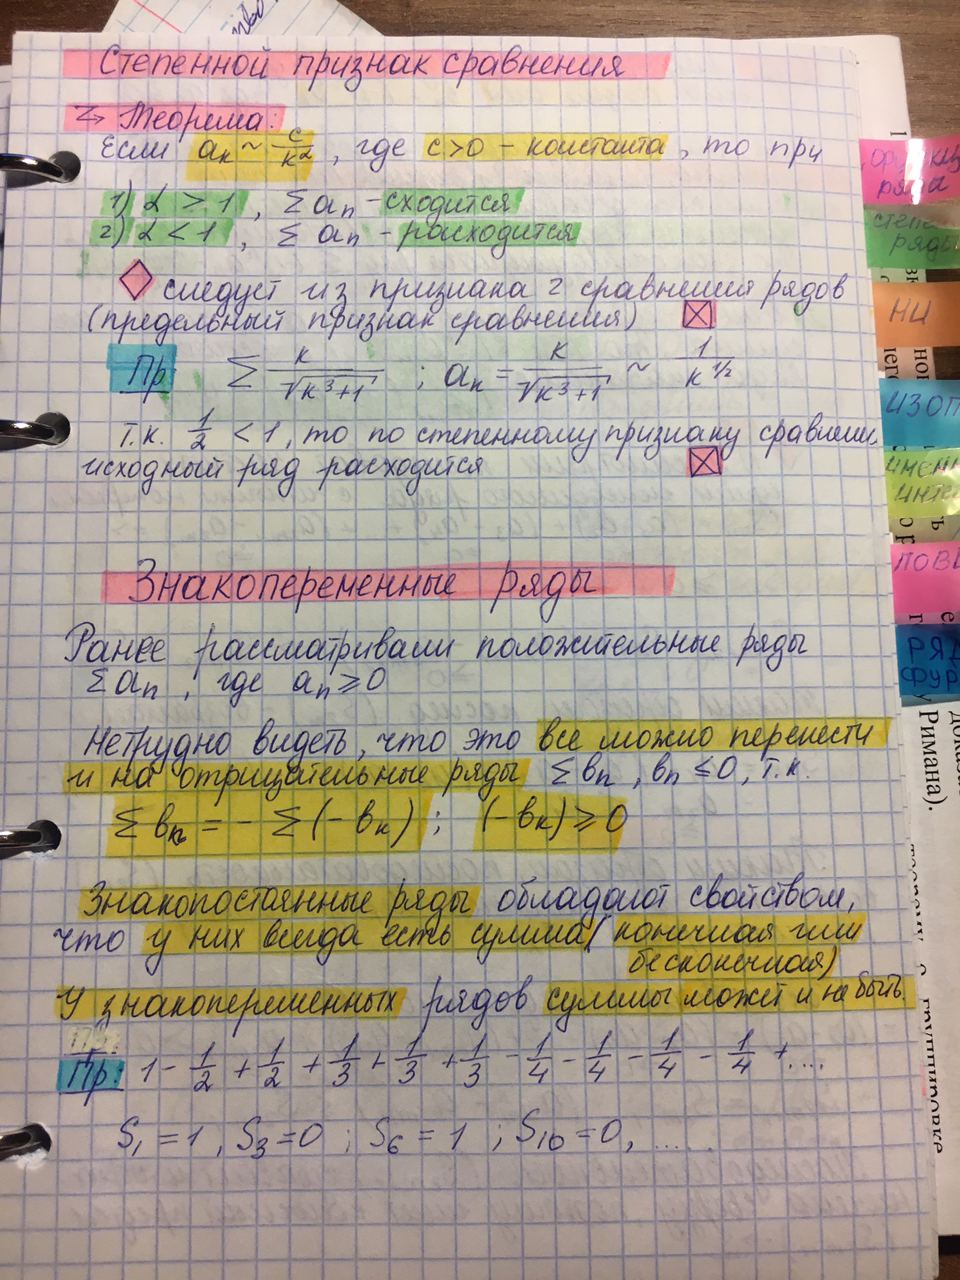 Степенной признак сравнения
Теорема:
Если aₖ ~ c/k^α, где c>0 – константа, то при
1) α > 1, Σ aₙ – сходится
2) α < 1, Σ aₙ – расходится
следует из признака 2 сравнения рядов
(предельный признак сравнения)
Пр: Σ k/√(k³+1) ; aₖ = k/√(k³+1) ~ 1/k^(1/2)
т.к. 1/2 < 1, то по степенному признаку сравнен.
исходный ряд расходится
Знакопеременные ряды
Ранее рассматривали положительные ряды
Σaₙ, где aₙ ≥ 0
Нетрудно видеть, что это все можно перенести
и на отрицательные ряды Σвₙ, вₙ ≤ 0, т.к.
Σ вₖ = - Σ (- вₖ) ; (-вₖ) ≥ 0
Знакопостоянные ряды обладают свойством,
что у них всегда есть сумма (конечная или
бесконечная)
У знакопеременных рядов суммы может и не быть.
Пр: 1 - 1/2 + 1/2 + 1/3 + 1/3 + 1/3 - 1/4 - 1/4 - 1/4 - 1/4 + ....
S₁ = 1, S₃ = 0 ; S₆ = 1 ; S₁₀ = 0, .....
ряда
степе
ряды
НИ
ИЗОП
ИНТЕ
ПОВ
РЯД
ФУР
Римана).